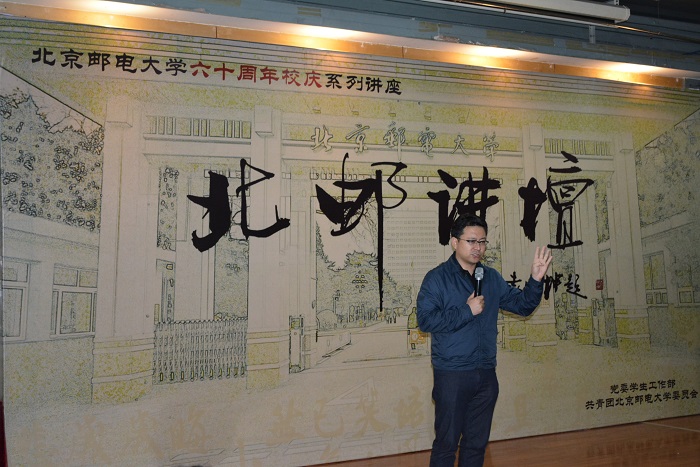 北京邮电大学六十周年校庆系列讲座
北京邮电大学
北邮讲坛
题
党委学生工作部
共青团北京邮电大学委员会